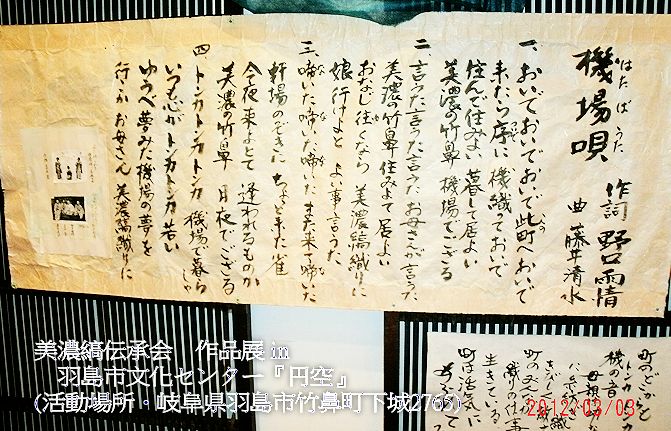 機場唄
はたばうた
作詞 野口雨情
曲 藤井清水
一、おいでおいでおいで此町へおいで
来たら序に 機織っておいで
住んで住みよい 暮して居よい
美濃の竹鼻 機場でござる
二、言うた言うた言うた お母さんが言うた
美濃の竹鼻 住みよて居よい
おなじ往くなら 美濃縞織りに
娘行けよと よい事言うた
三、啼いた啼いた啼いた また来て啼いた
軒場のぞきに ちょっと来た雀
今夜来よとて 逢われるものか
美濃の竹鼻 月夜でござる
四、トンカトンカトンカ 機場で暮らしゃ
いつも心が トンカトンカ 若い
ゆうべ夢みた 機場の夢を
行こか お母さん 美濃縞織りに
町のどこかと
機の音
生きている
町は活気に
美濃縞伝承会 作品展 in
羽島市文化センター『円空』
(活動場所・岐阜県羽島市竹鼻町下城2765)
2012/03/03